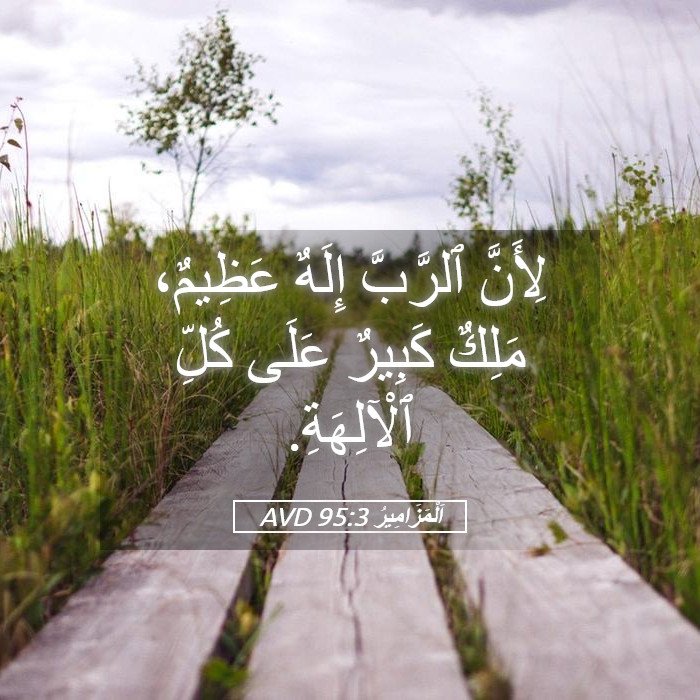 لِأَنَّ ٱلرَّبَّ إِلَهٌ عَظِيمٌ،
مَلِكٌ كَبِيرٌ عَلَى كُلِّ
ٱلْآلِهَةِ.
اَلْمَزَامِيرُ 95:3 AVD